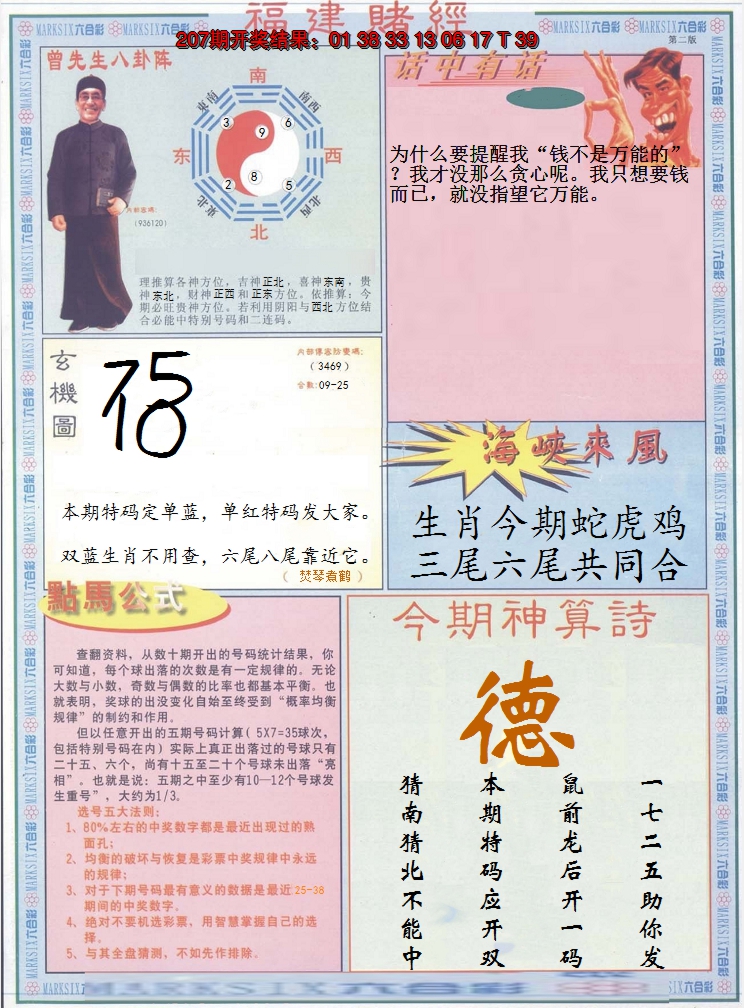 福建賭經
207期开奖结果：01 38 33 13 06 17 T 39
第二版
MARKSIX六合彩
曾先生八卦阵
南
东南
南西
3
9
6
东
西
2
8
5
東北
北西
北
內部密碼：
（936120）
理推算各神方位，吉神正北，喜神东南，贵
神东北，财神正西和正东方位。依推算：今
期必旺贵神方位。若利用阴阳与西北方位结
合必能中特别号码和二连码。
话中有话
为什么要提醒我“钱不是万能的”
？我才没那么贪心呢。我只想要钱
而已，就没指望它万能。
玄機圖
內部傳密防變碼：
（3469）
合数：09-25
本期特码定单蓝，单红特码发大家。
双蓝生肖不用查，六尾八尾靠近它。
（焚琴煮鹤）
海峽來風
生肖今期蛇虎鸡
三尾六尾共同合
點馬公式
查翻资料，从数十期开出的号码统计结果，你
可知道，每个球出落的次数是有一定规律的。无论
大数与小数，奇数与偶数的比率也都基本平衡。也
就表明，奖球的出没变化自始至终受到“概率均衡
规律”的制约和作用。
但以任意开出的五期号码计算（5X7=35球次，
包括特别号码在内）实际上真正出落过的号球只有
二十五、六个，尚有十五至二十个号球未出落“亮
相”。也就是说：五期之中至少有10—12个号球发
生重号”，大约为1/3。
选号五大法则：
1、80%左右的中奖数字都是最近出现过的熟
面孔；
2、均衡的破坏与恢复是彩票中奖规律中永远
的规律；
3、对于下期号码最有意义的数据是最近25-38
期间的中奖数字。
4、绝对不要机选彩票，用智慧掌握自己的选
择。
5、与其全盘猜测，不如先作排除。
今期神算詩
德
一七二五助你发
鼠前龙后开一码
本期特码应开双
猜南猜北不能中